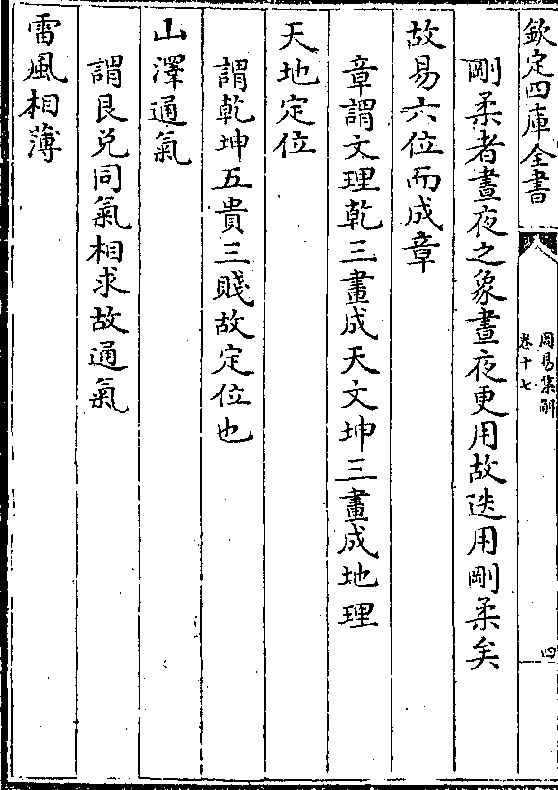 欽定四庫全書
周易集解
卷十七
四
剛柔者晝夜之象晝夜更用故迭用剛柔矣
故易六位而成章
章謂文理乾三畫成天文坤三畫成地理
天地定位
謂乾坤五貴三賤故定位也
山澤通氣
謂艮兌同氣相求故通氣
雷風相薄